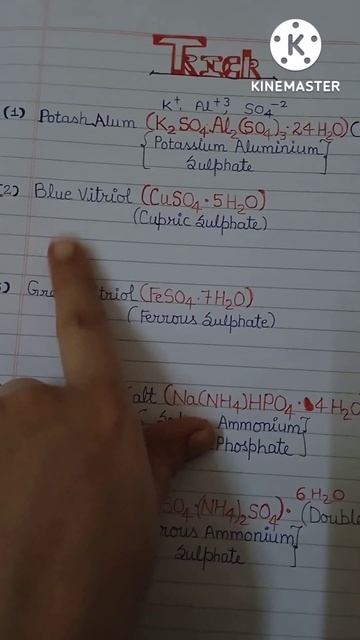 Trick
KINEMASTER
K⁺ Al⁺³ SO₄⁻²
(1) Potash Alum (K₂SO₄.Al₂(SO₄)₃.24H₂O)(
[Potassium Aluminium
Sulphate]
2) Blue Vitriol (CuSO₄.5H₂O)
(Cupric Sulphate)
) Gre triol (FeSO₄.7H₂O)
(Ferrous Sulphate)
alt (Na(NH₄)HPO₄.4H₂O
Ammonium
Phosphate]
SO₄.(NH₄)₂SO₄).6H₂O
(Double
rrous Ammonium
Sulphate]